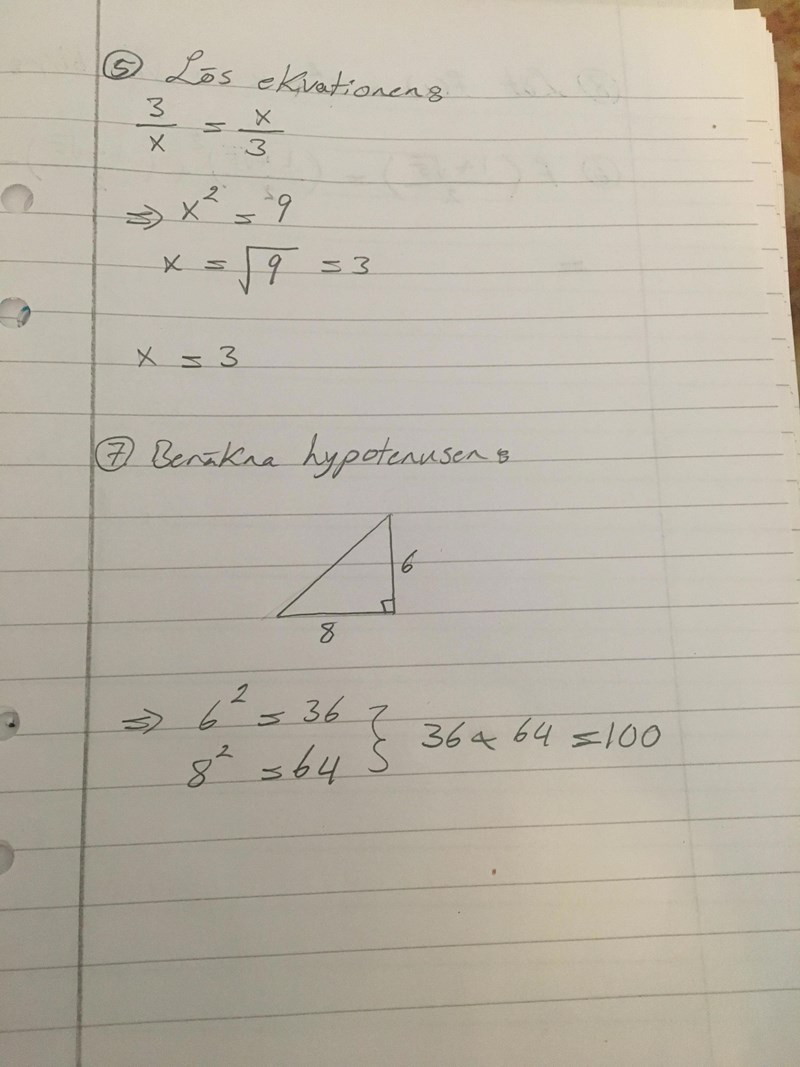 ⑤ Lös ekvationen:
3/x = x/3
⇒ x² = 9
x = √9 = 3
x = 3
⑦ Beräkna hypotenusen:
6
8
⇒ 6² = 36
8² = 64 } 36 + 64 = 100